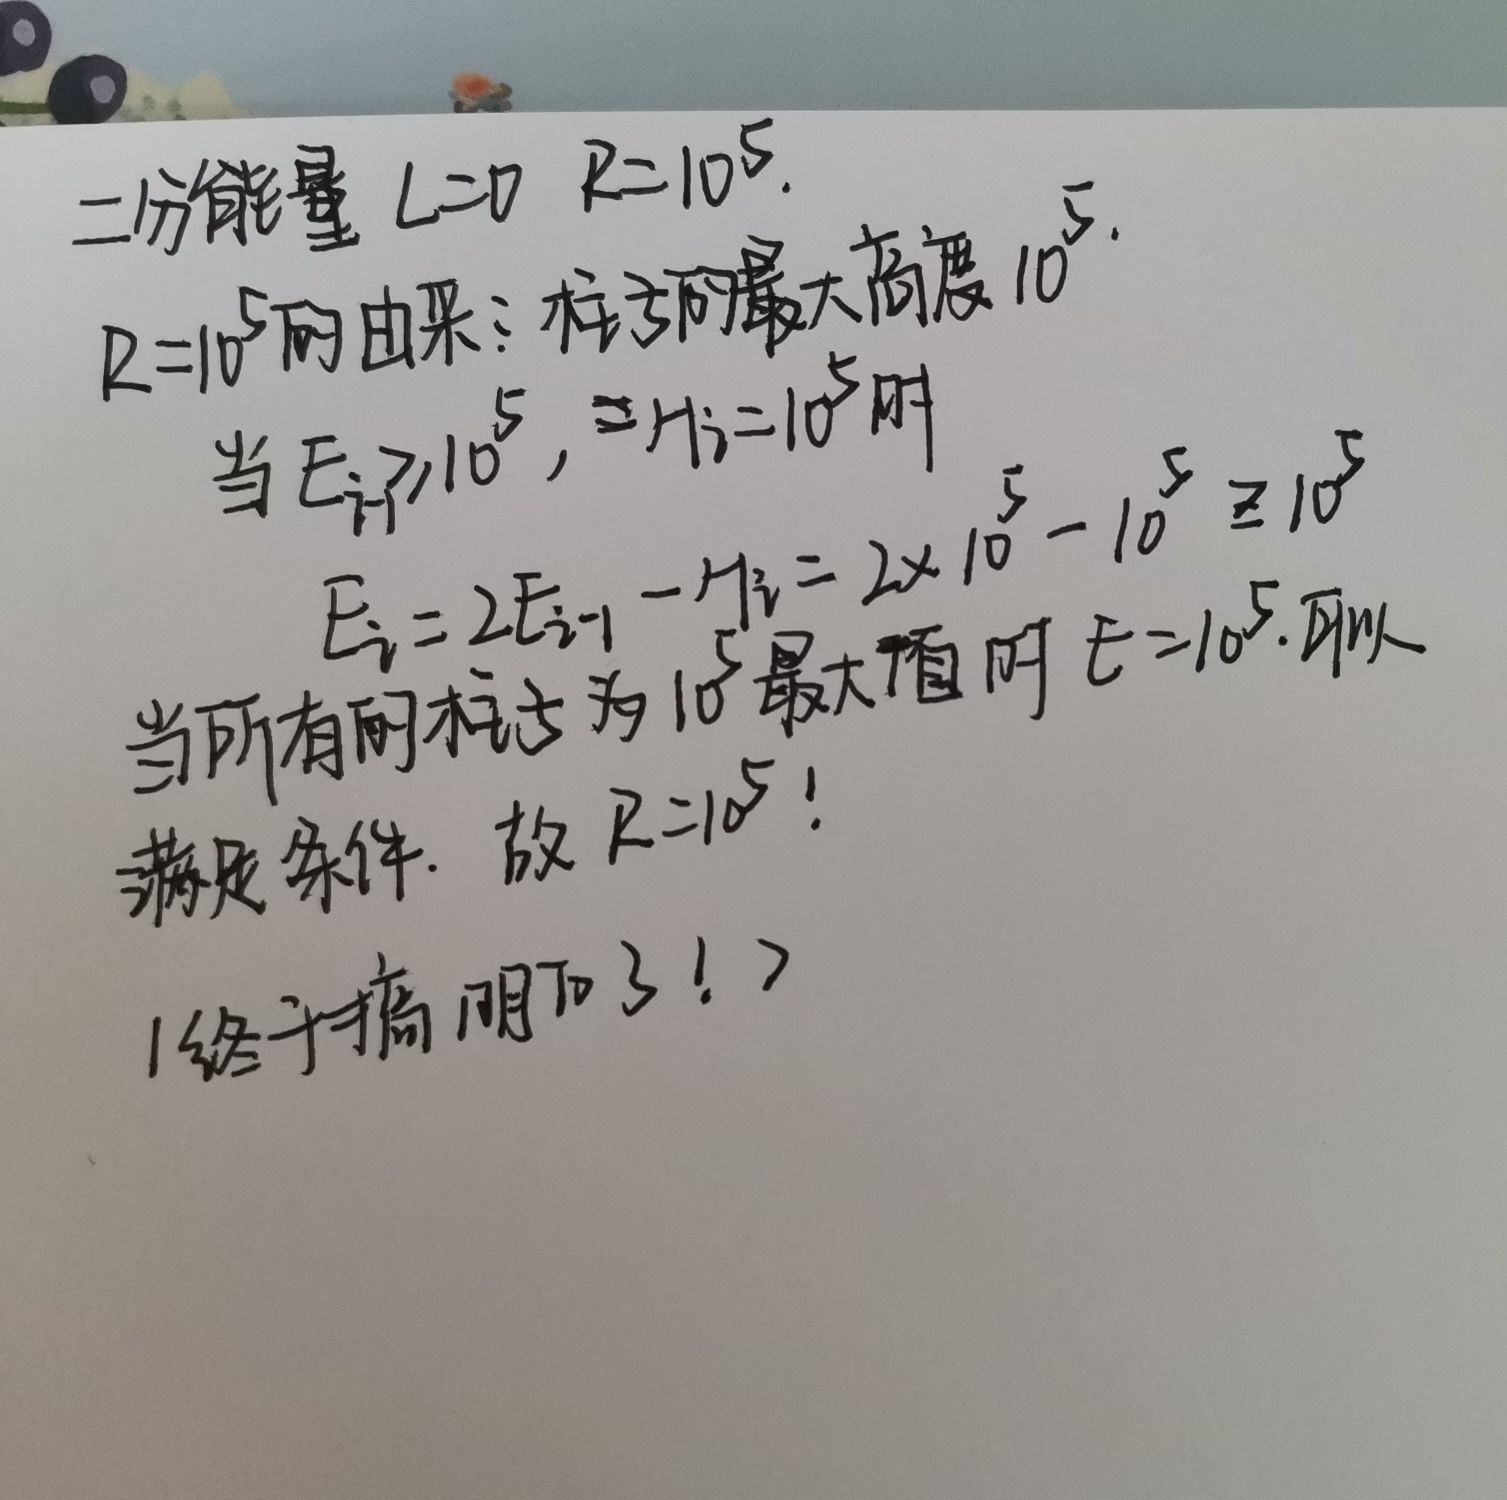 二分能量 L=0 R=10⁵.
R=10⁵的由来:柱子的最大高度10⁵.
当 Eᵢ₋₁≥10⁵, Hᵢ=10⁵时
Eᵢ=2Eᵢ₋₁-Hᵢ=2×10⁵-10⁵=10⁵
当所有的柱子为10⁵最大值时 E=10⁵.可以
满足条件. 故 R=10⁵!
(终于搞明白了!)